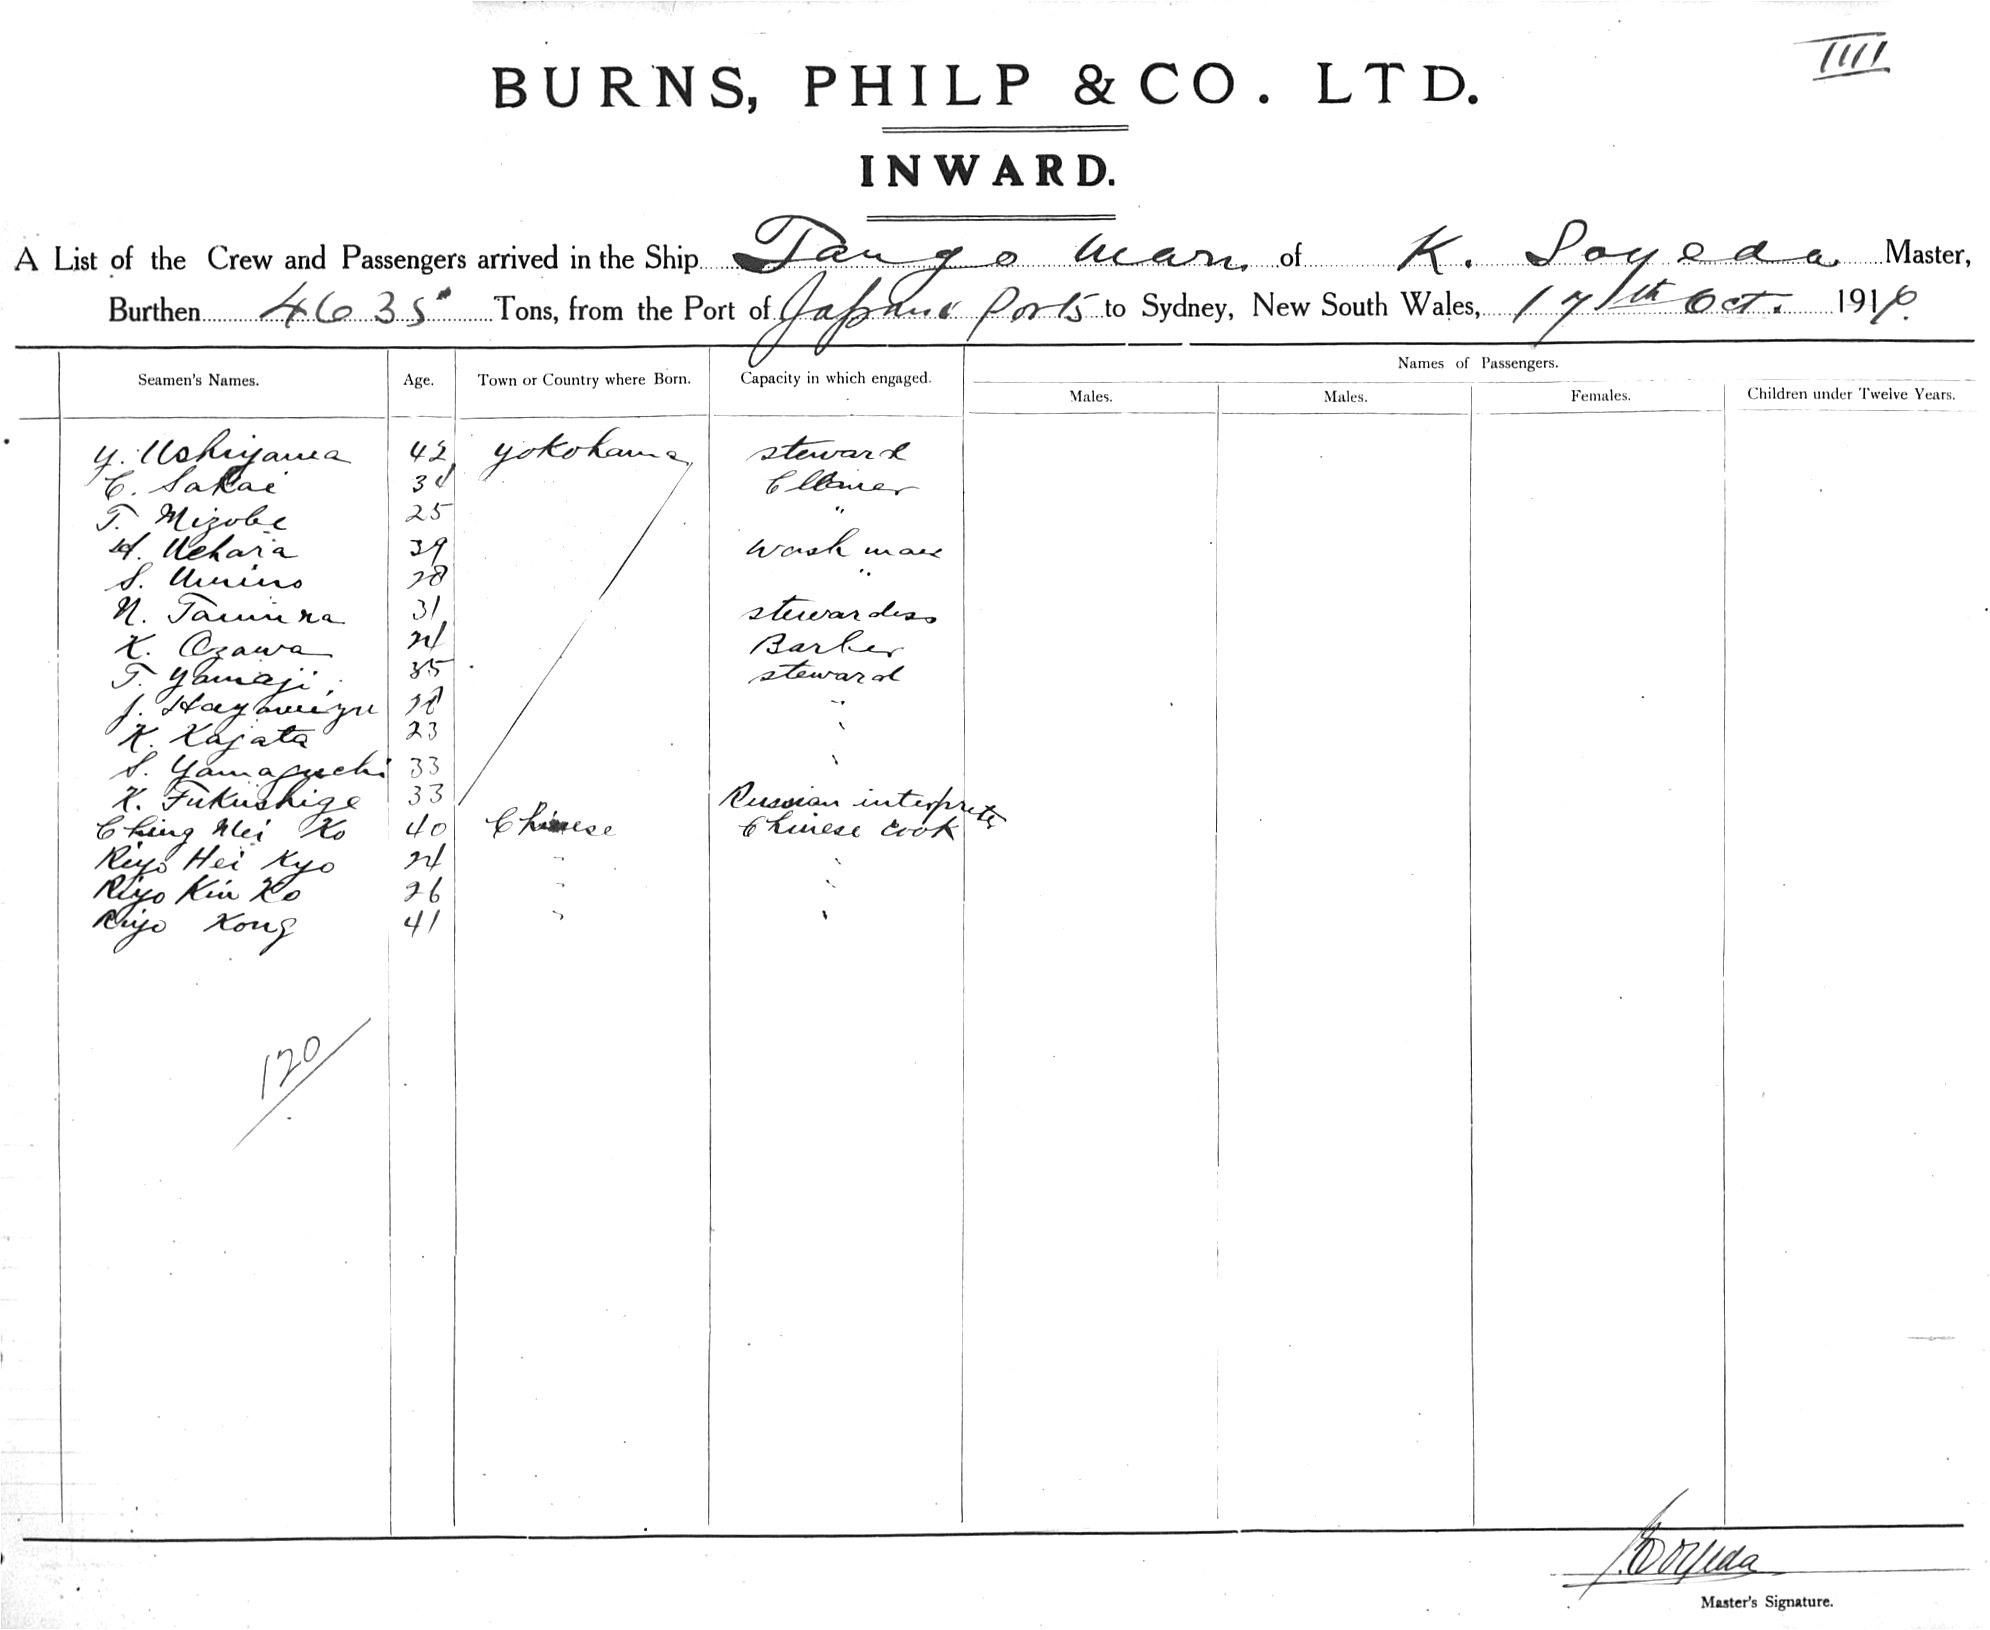 IIII
BURNS, PHILP & CO. LTD.
INWARD.
A List of the Crew and Passengers arrived in the Ship Tango Maru of K. Soyeda Master,
Burthen 4635 Tons, from the Port of Japan Ports to Sydney, New South Wales, 17th Oct. 1916.
Names of Passengers.
Seamen's Names. Age. Town or Country where Born. Capacity in which engaged. Males. Males. Females. Children under Twelve Years.
Y. Ushiyama 42 Yokohama steward
C. Sakai 34
T. Mizobe 25 "
H. Uehara 39 Wash man
S. Umino 28 "
N. Tamura 31 stewardess
K. Ozawa 24 Barber
T. Yamaji 35 steward
J. Hayamizu 28 "
K. Kajata 23 "
S. Yamaguchi 33 "
K. Fukushige 33 Russian interpreter
Ching Mei Ko 40 Chinese Chinese cook
Riyo Hei Kyo 24 " "
Riyo Kin Ko 26 " "
Riyo Kong 41 " "
120
Soyeda
Master's Signature.